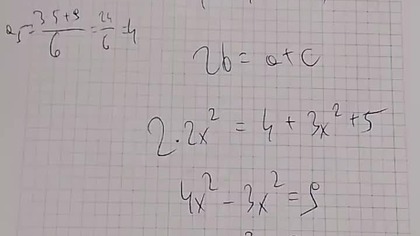 a₅ = (3·5+9)/6 = 24/6 = 4
2b = a + c
2 · 2x² = 4 + 3x² + 5
4x² - 3x² = 9